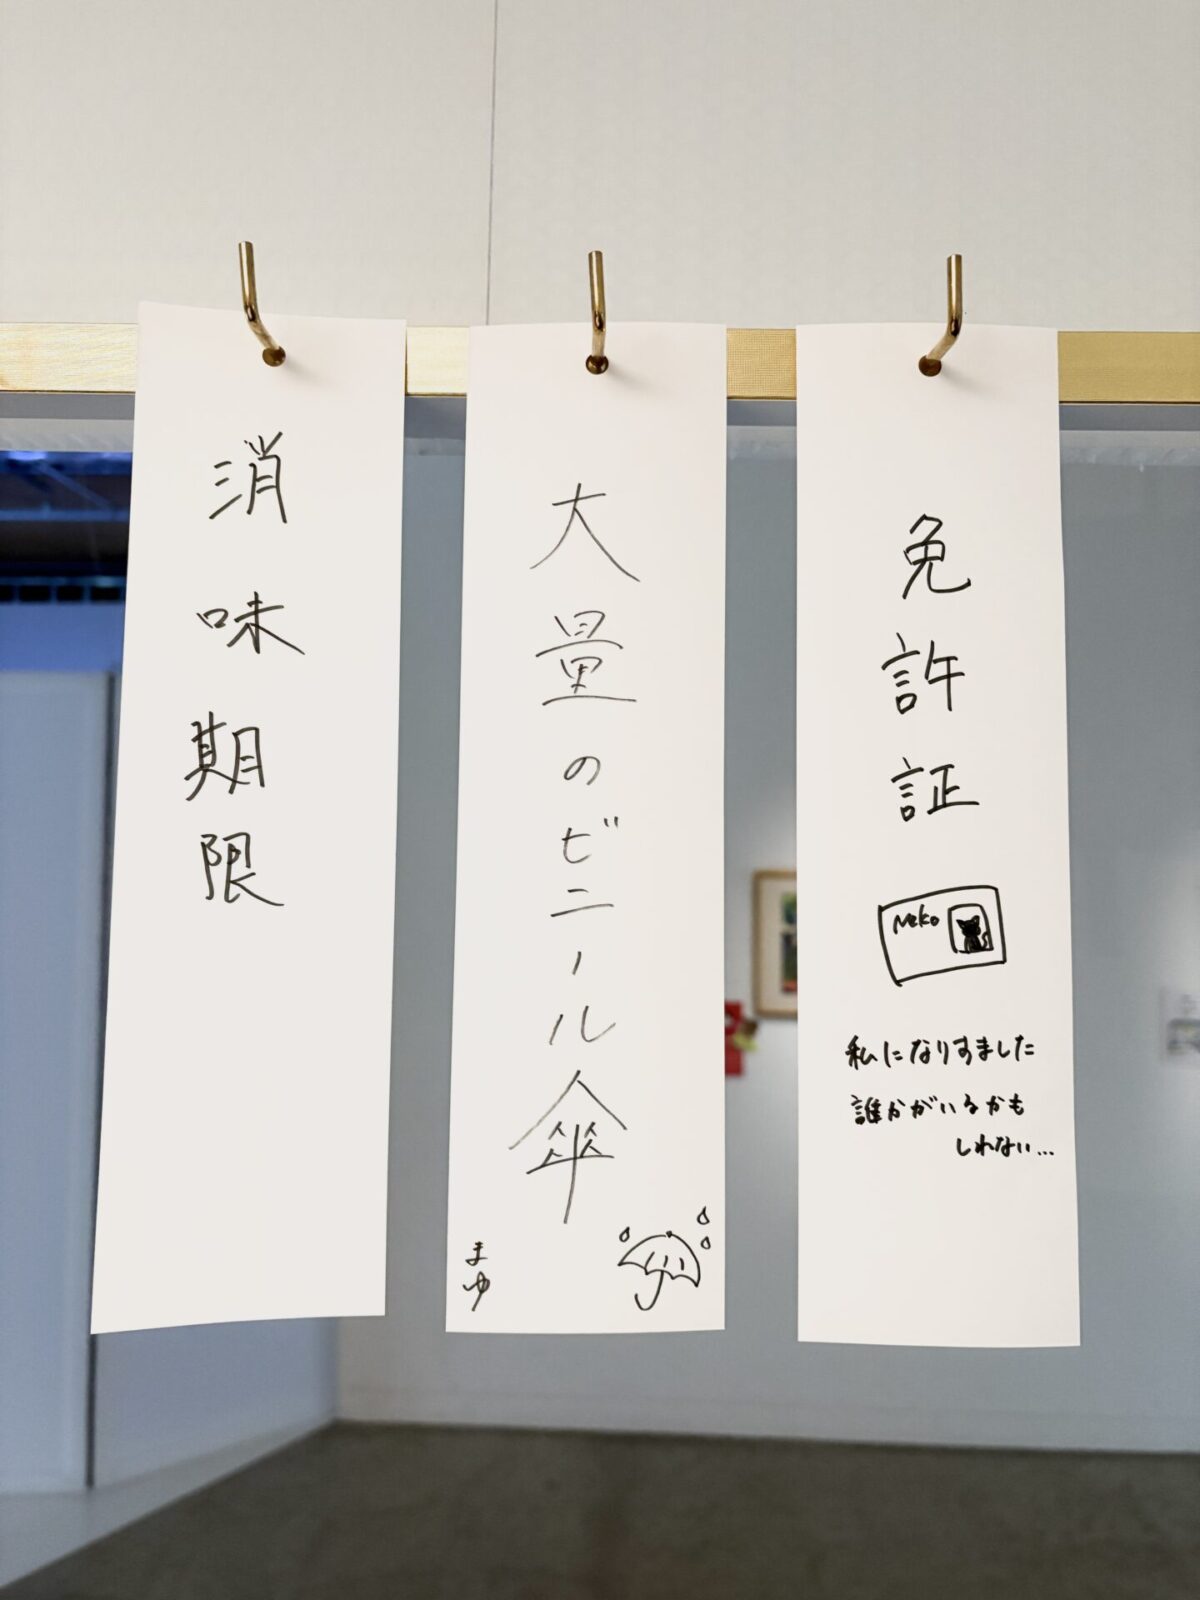 消味期限
大量のビニール傘
まゆ
免許証
Neko
私になりすました
誰かがいるかも
しれない...